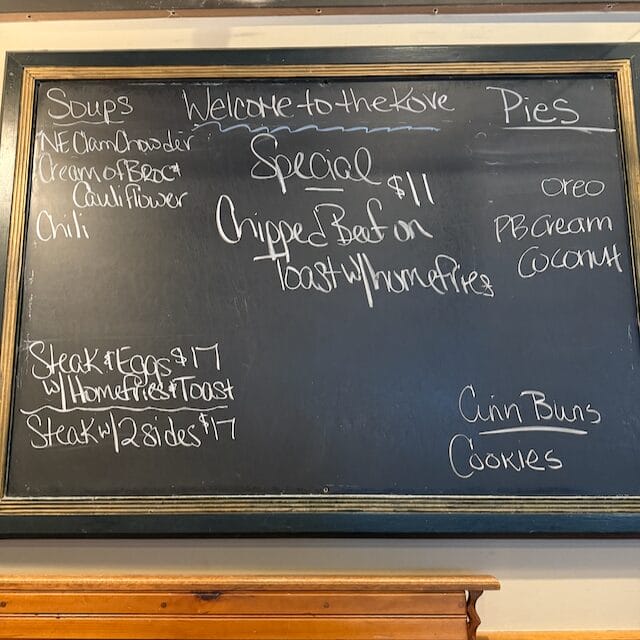 Welcome to the Kove
Soups
NE Clam Chowder
Cream of Broc &
Cauliflower
Chili
Special
$11
Chipped Beef on
Toast w/ homefries
Pies
Oreo
PB Cream
Coconut
Steak & Eggs $17
w/ Homefries & Toast
Steak w/ 2 sides $17
Cinn Buns
Cookies